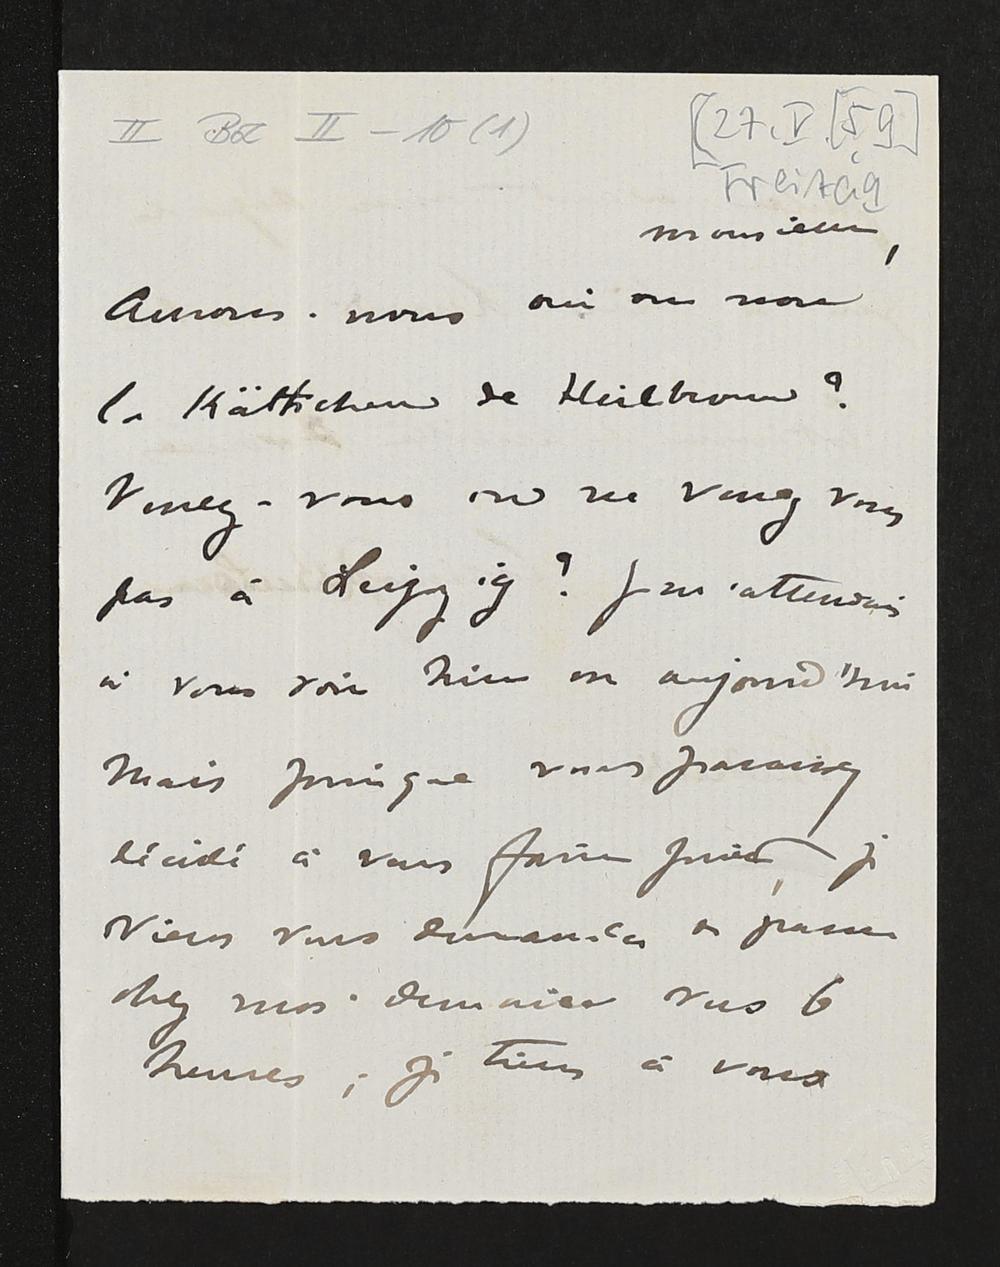 II Bd II - 10 (1)
[27. V. [59]
Freitag
Monsieur,
Aurons-nous oui ou non
la Kättschen de Heilbronn ?
Venez-vous ou ne venez vous
pas à Leipzig ? Je m'attendais
à vous voir hier ou aujourd'hui
Mais puisque vous paraissez
décidé à vous faire prier, je
viens vous demander de passer
chez moi demain vers 6
heures ; je tiens à vous